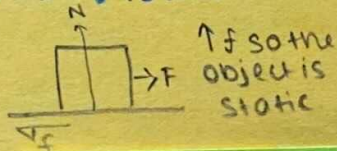 N
↑f so the
→F object is
static
f